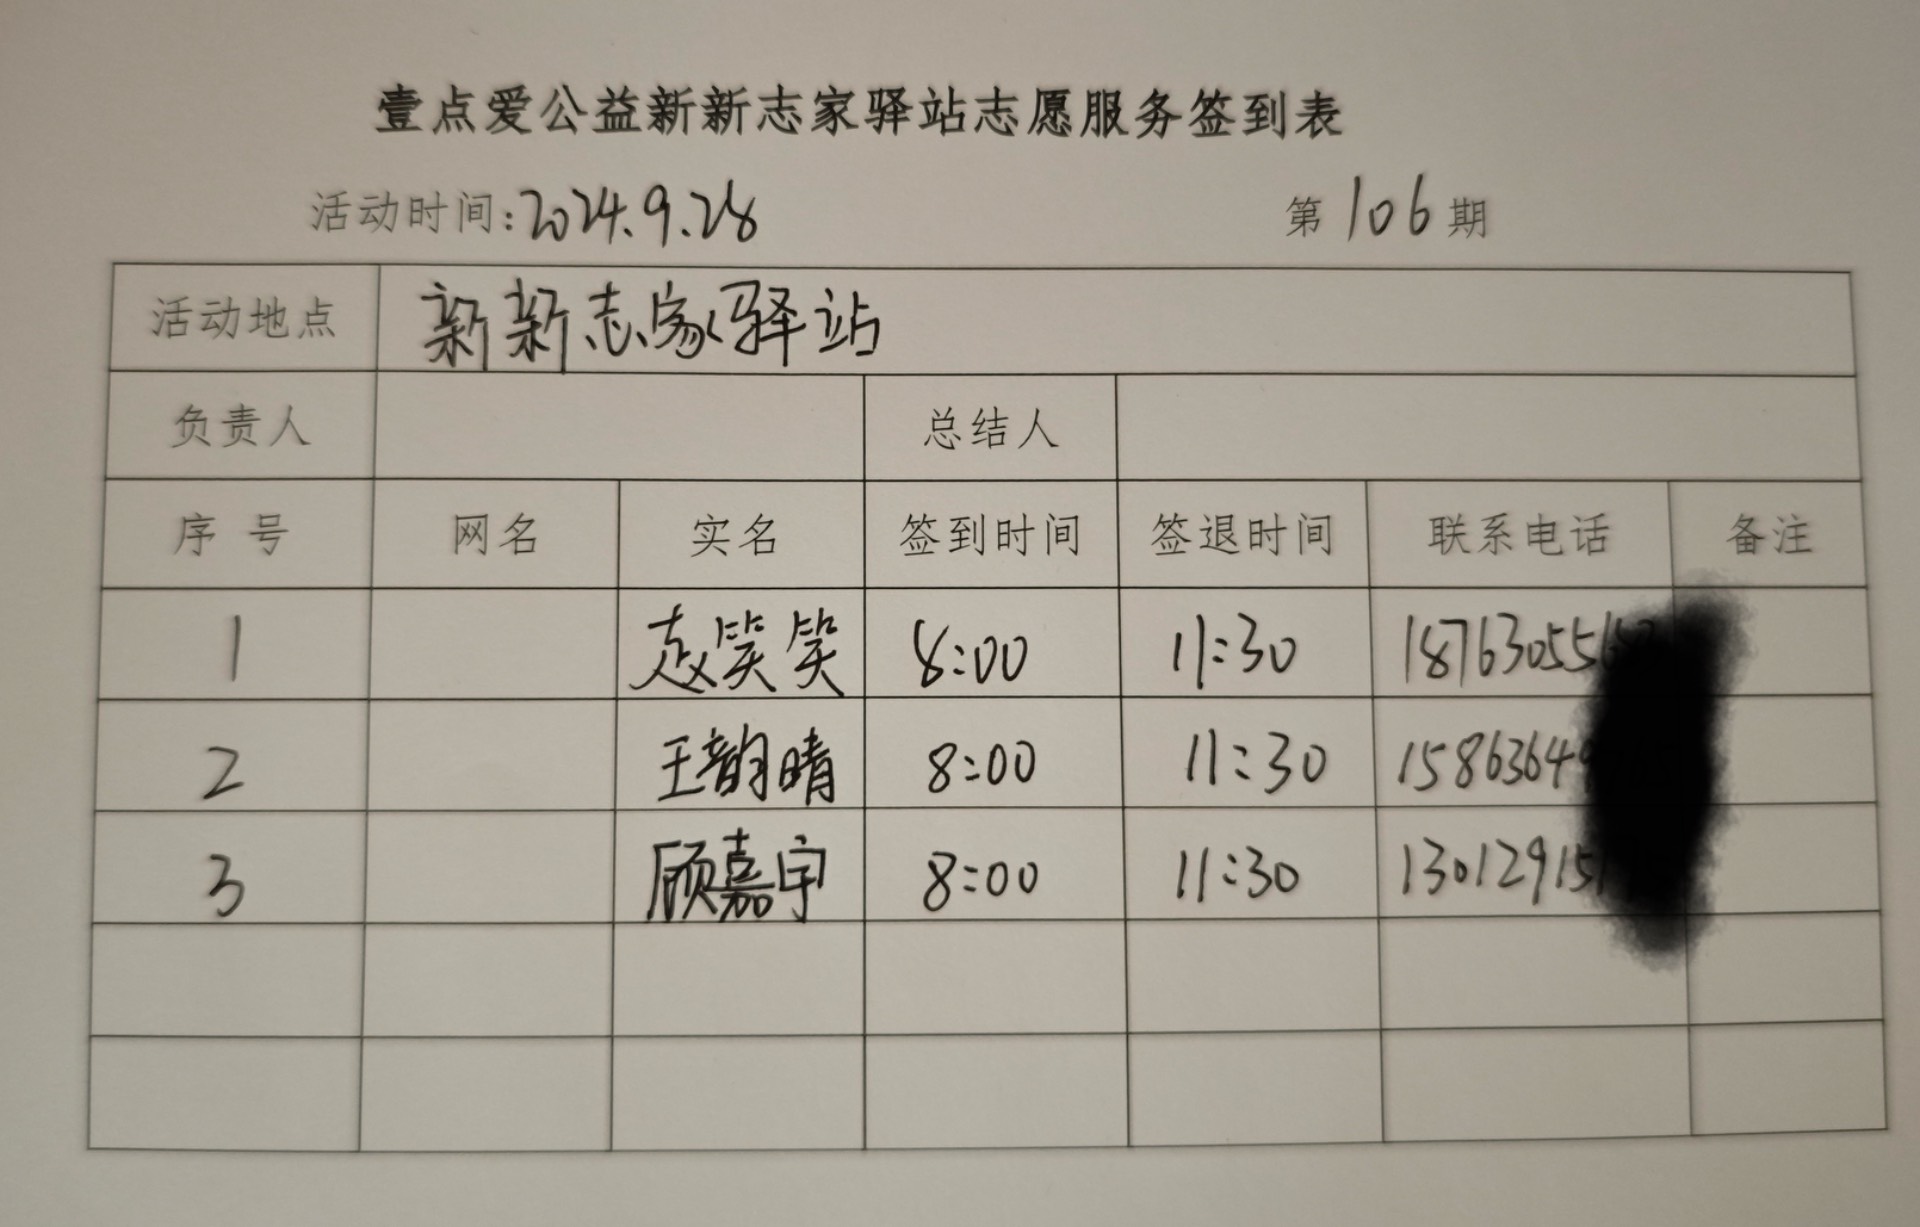 壹点爱公益新新志家驿站志愿服务签到表
活动时间:2024.9.28 第106期
活动地点 新新志家驿站
负责人 总结人
序号 网名 实名 签到时间 签退时间 联系电话 备注
1 赵笑笑 8:00 11:30 187630556
2 王韵晴 8:00 11:30 15863649
3 顾嘉宇 8:00 11:30 130129151